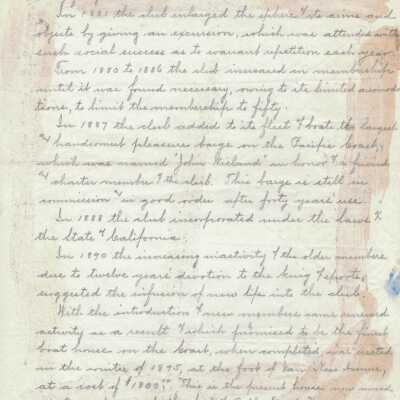 In 1881 the club enlarged the sphere of its aims and
objects by giving an excursion, which was attended with
such social success as to warrant repetition each year.
From 1880 to 1886 the club increased in membership
until it was found necessary, owing to its limited accomoda-
tions, to limit the membership to fifty.
In 1887 the club added to its fleet of boats the largest
and handsomest pleasure barge on the Pacific Coast,
which was named "John Wieland" in honor of a friend
and charter member of the club. This barge is still in
commission and in good order after forty years use.
In 1888 the club incorporated under the laws of
the State of California.
In 1890 the increasing inactivity of the older members
due to twelve years devotion to the king of sports,
suggested the infusion of new life into the club.
With the introduction of new members came renewed
activity as a result of which promised to be the finest
boat house on the Coast, when completed, was erected
in the winter of 1895, at the foot of Van Ness Avenue,
at a cost of $1800.00 This is the present house now